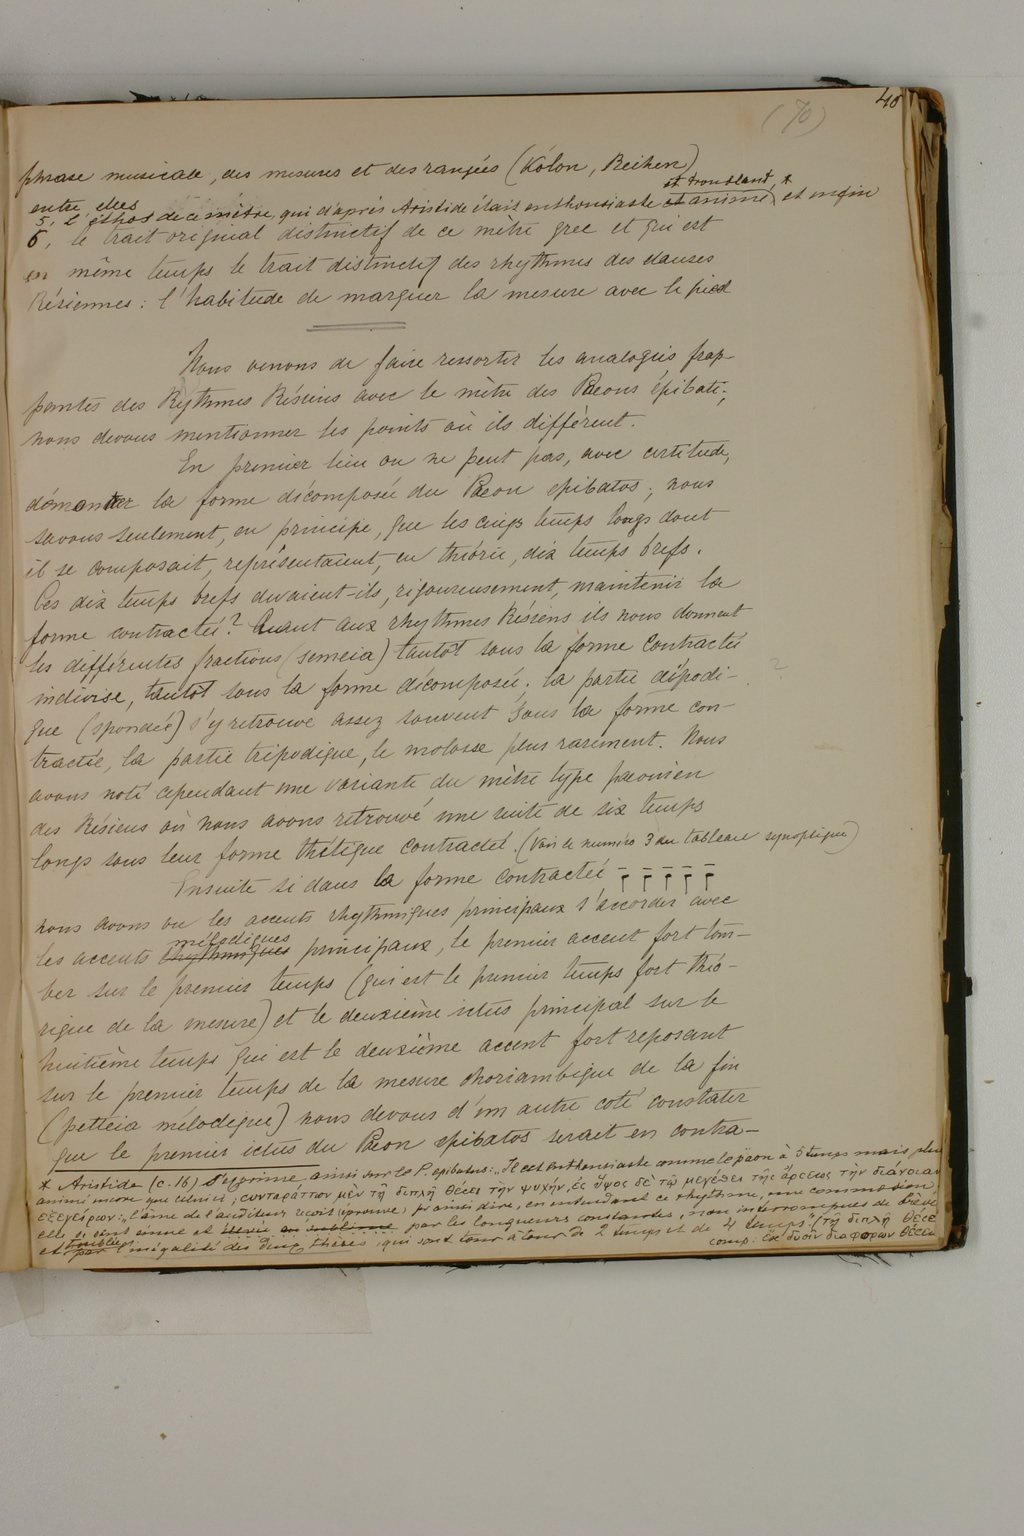 40
(70)
phrase musicale, des mesures et des rangées (Kôlon, Reihen)
entre elles
et troublant, *
5, L'éthos de ce mètre, qui d'après Aristide était enthousiaste et animé, et enfin
6, le trait original distinctif de ce mètre grec et qui est
en même temps le trait distinctif des rhythmes des danses
Résiennes: l'habitude de marquer la mesure avec le pied
Nous venons de faire ressortir les analogies frap-
pantes des Rythmes Résiens avec le mètre des Pæons épibati;
nous devons mentionner les points où ils diffèrent.
En premier lieu on ne peut pas, avec certitude,
démontrer la forme décomposée du Pæon epibatos; nous
savons seulement, en principe, que les cinq temps longs dont
il se composait, représentaient, en théorie, dix temps brefs.
Ces dix temps brefs devaient-ils, rigoureusement, maintenir la
forme contractée? Quant aux rhythmes Résiens ils nous donnent
les différentes fractions (semeia) tantôt sous la forme contractée
indivise, tantôt sous la forme décomposée; la partie dipodi-
?
que (spondée) s'y retrouve assez souvent sous la forme con-
tractée, la partie tripodique, le molosse plus rarement. Nous
avons noté cependant une variante du mètre type paeonien
des Résiens où nous avons retrouvé une suite de six temps
longs sous leur forme thétique contractée. (Voir le numéro 3 du tableau synoptique)
Ensuite si dans la forme contractée
nous avons vu les accents rhythmiques principaux s'accorder avec
mélodiques
les accents rhythmiques principaux, le premier accent fort tom-
ber sur le premier temps (qui est le premier temps fort théo-
rique de la mesure) et le deuxième ictus principal sur le
huitième temps qui est le deuxième accent fort reposant
sur le premier temps de la mesure choriambique de la fin
(petteia mélodique) nous devons d'un autre coté constater
que le premier ictus du Pæon epibatos serait en contra-
* Aristide (c. 16) s'exprime ainsi sur le P. epibatus: "Il est enthousiaste comme le pæon à 5 temps mais plus
animé encore que celui-ci, συνταράττων μὲν τῇ διπλῇ θέσει τὴν ψυχήν, ἐς ὕψος δὲ τῷ μεγέθει τῆς ἄρσεως τὴν διάνοιαν
ἐξεγείρων: "l'âme de l'auditeur reçoit (éprouve) pr ainsi dire, en entendant ce rhythme, une commotion,
elle se sent émue et élevée au sublime par les longueurs constantes, non interrompues de brèves
et troublée par l'inégalité des deux thèses, qui sont tour à tour de 2 temps et de 4 temps." (τῇ διπλῇ θέσει
comp: ἐκ δυσὶν διαφόρων θέσεων